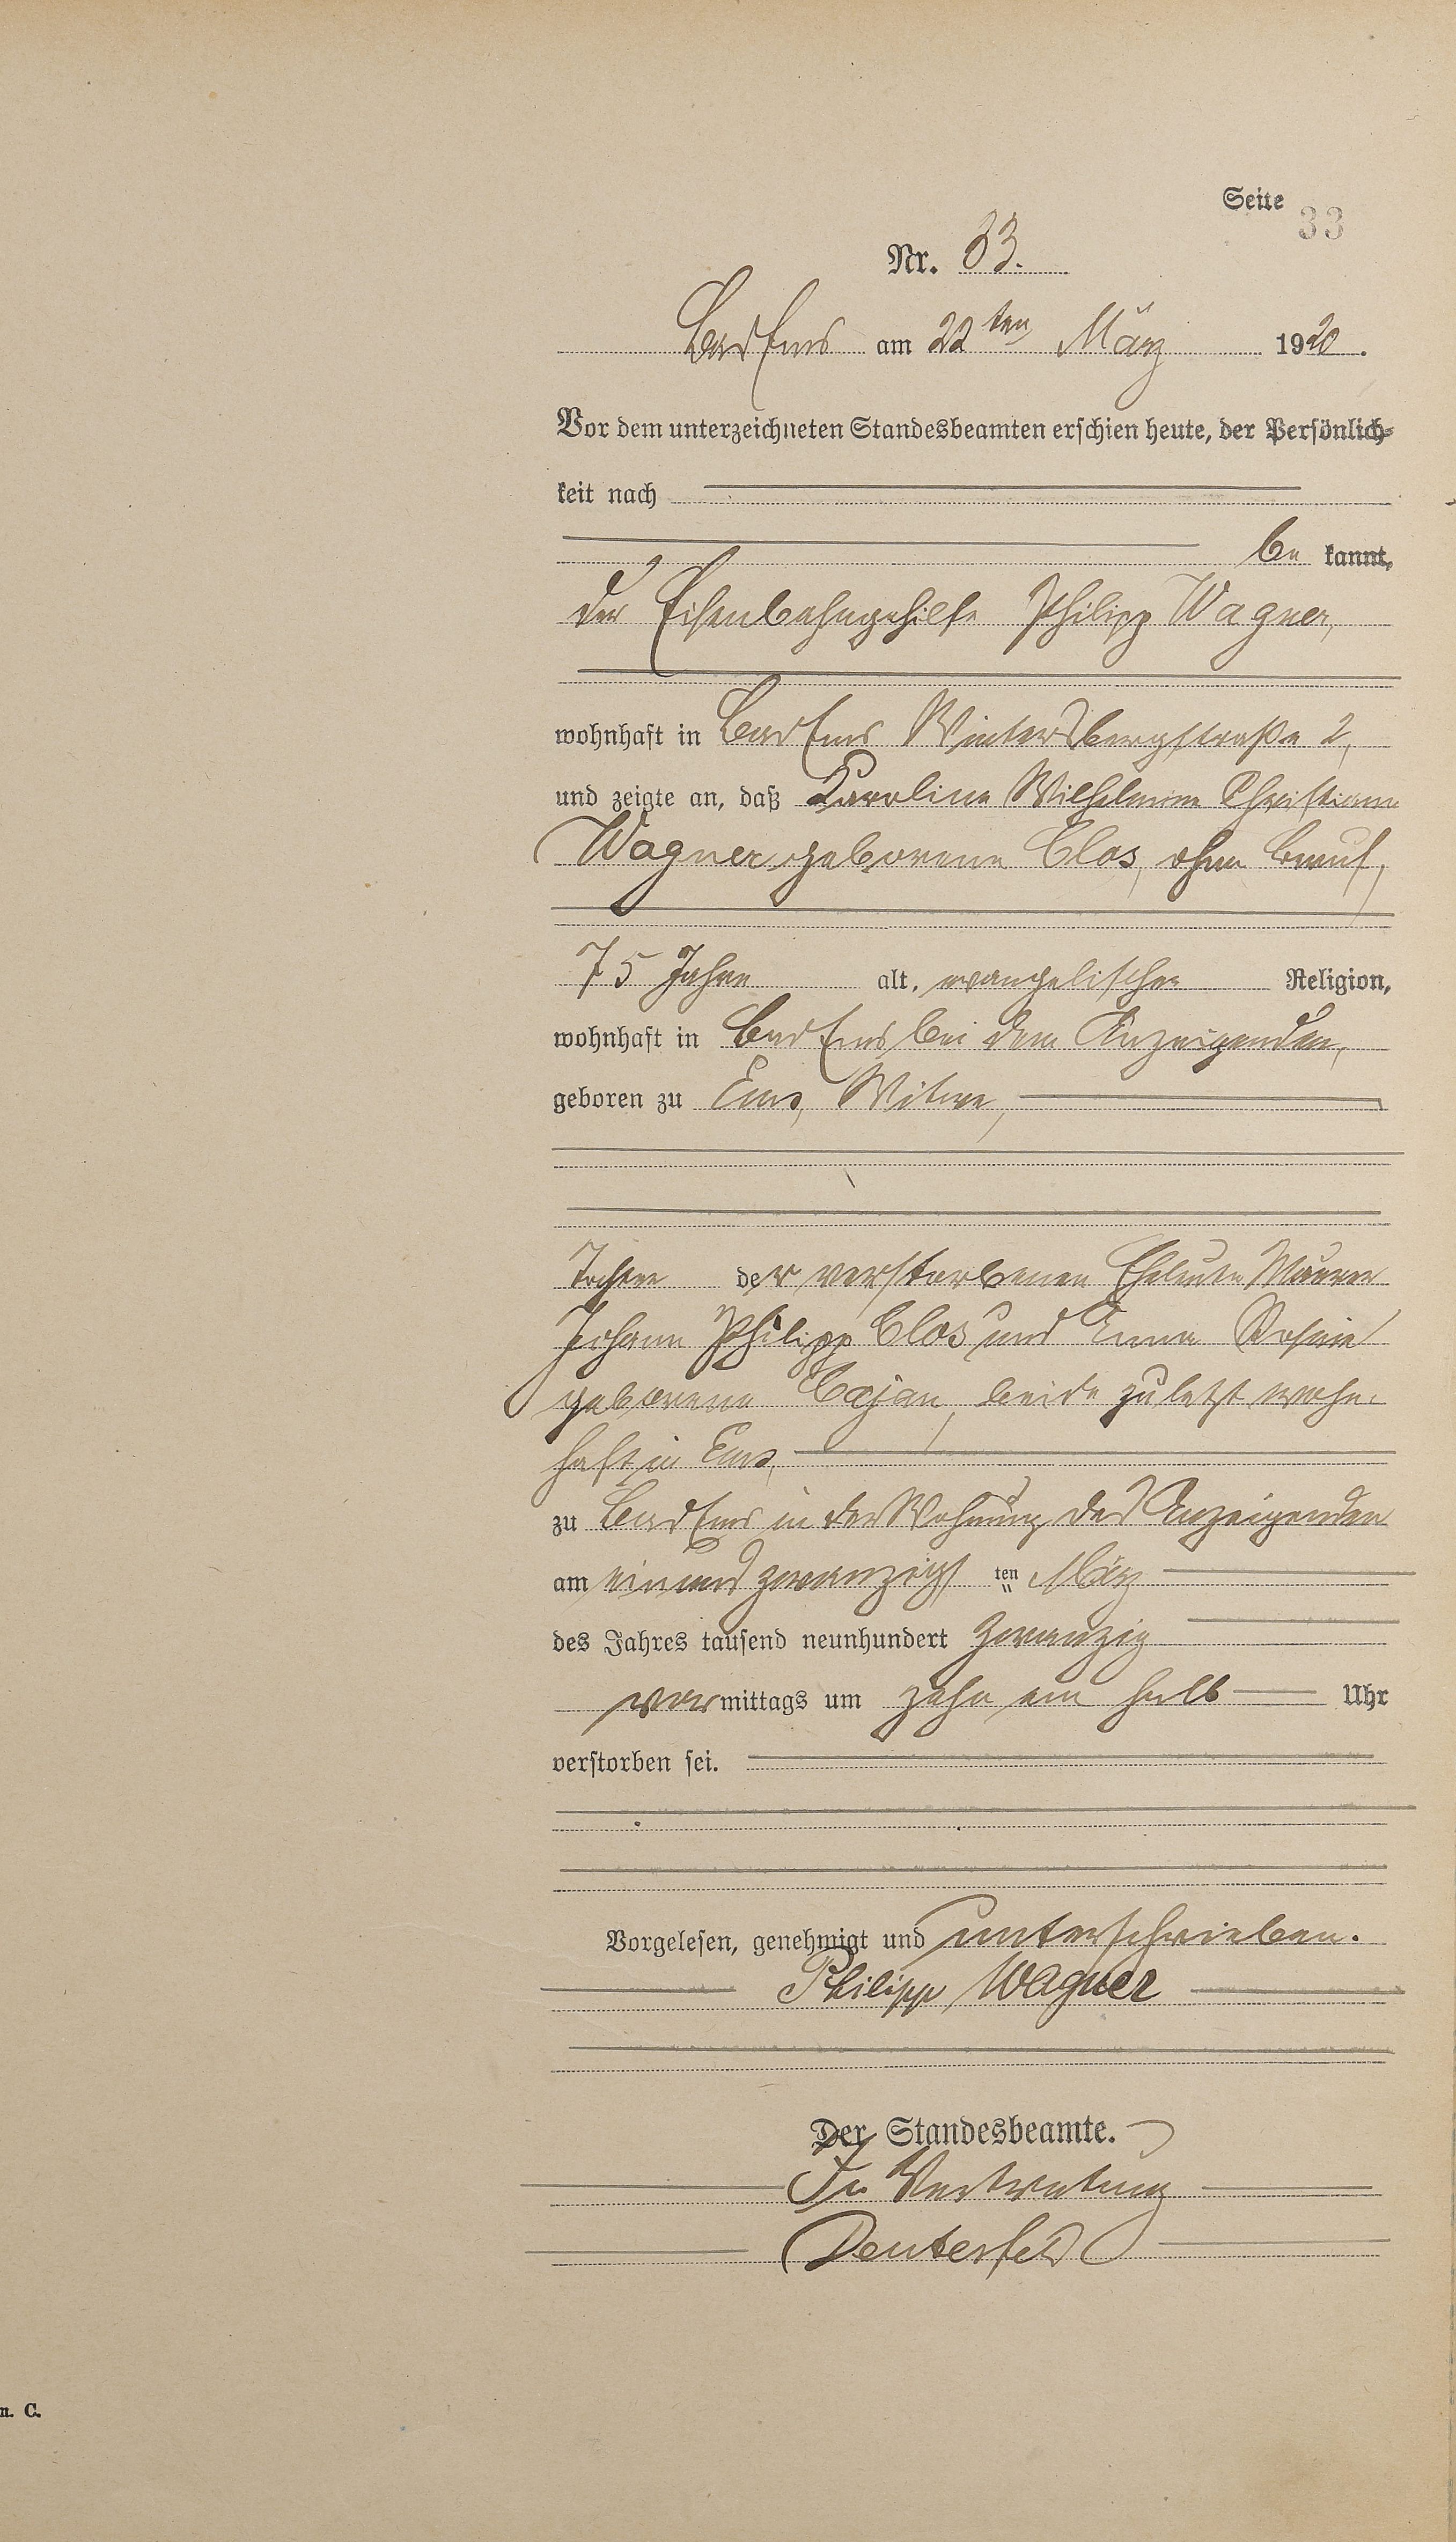 Seite 33
Nr. 33.
Bad Ems am 22ten März 1920.
Vor dem unterzeichneten Standesbeamten erschien heute, der Persönlich-
keit nach
be kannt,
der Eisenbahngehilfe Philipp Wagner,
wohnhaft in Bad Ems Wintersbergstraße 2,
und zeigte an, daß Karoline Wilhelmine Christiane
Wagner geborene Clos, ohne Beruf,
75 Jahre alt, evangelischer Religion,
wohnhaft in Bad Ems bei dem Anzeigenden,
geboren zu Ems, Witwe,
Tochter der verstorbenen Eheleute Maurer
Johann Philipp Clos und Anna Rosine
geborene Cajan, beide zuletzt wohn-
haft in Ems,
zu Bad Ems in der Wohnung des Anzeigenden
am einundzwanzigsten März
des Jahres tausend neunhundert zwanzig
vormittags um zehn ein halb Uhr
verstorben sei.
Vorgelesen, genehmigt und unterschrieben.
Philipp Wagner
Der Standesbeamte.
In Vertretung
Deuterfeld
n. C.